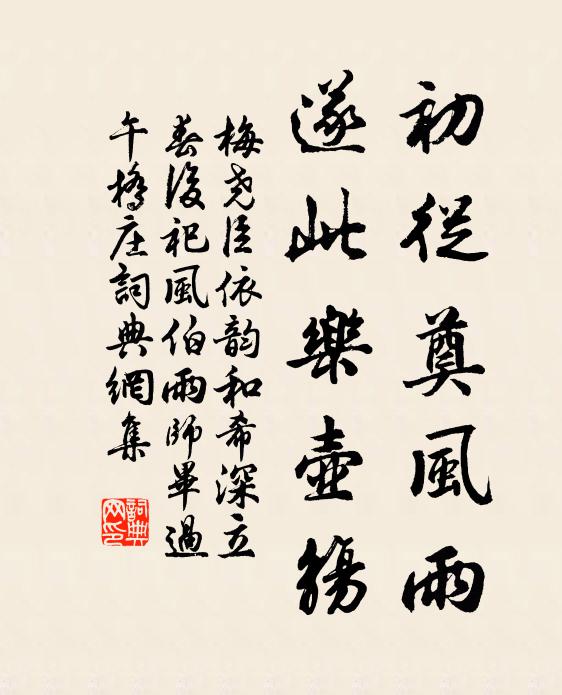 初從奠風雨
遂此樂壺觴
梅堯臣依韵和希深立
春後祀風伯雨師畢過
午橋庄詞典網集
詞典
网印